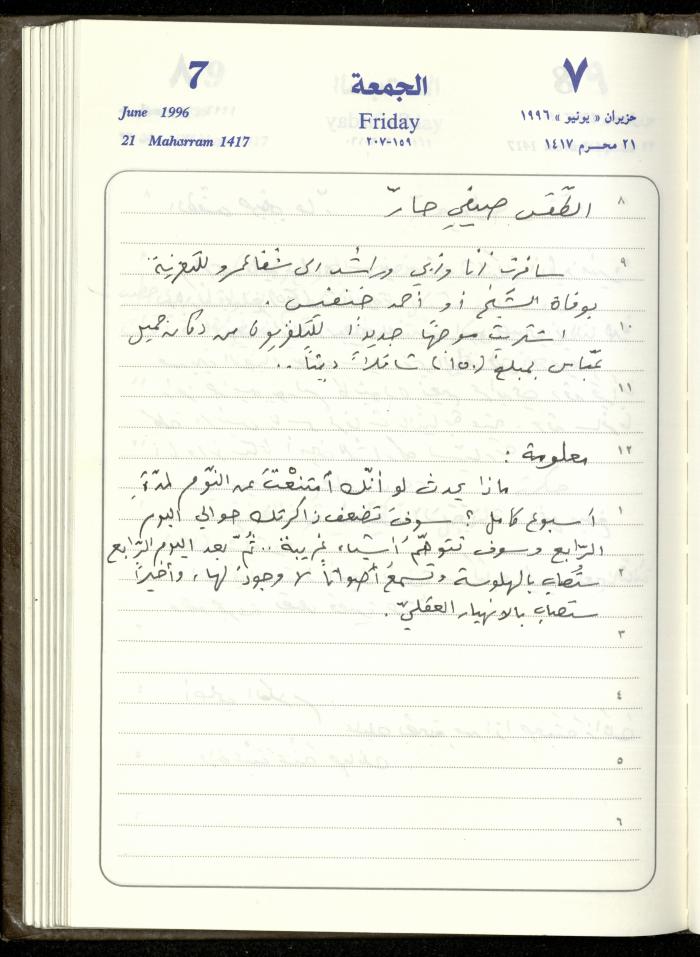 7 الجمعة ٧
June 1996 Friday حزيران « يونيو » ١٩٩٦
21 Maharram 1417 ١٥٩-٢٠٧ ٢١ محرم ١٤١٧
٨ الطّقس صيفي حارّ
٩ سافرت أنا وأبي وراشد الى شفاعمرو للتعزية
بوفاة الشيخ أبو أحمد خنيفس .
١٠ اشتريت موجهًا جديدًا للتلفزيون من دكان جميل
عبّاس بمبلغ (١٥٠) شاقلاً دينًا ..
١١
١٢ معلومة :
ماذا يحدث لو أنّك أمتنعْتَ عن النّوم لمدّةِ
١ أسبوع كامل ؟ سوفَ تضعف ذاكرتك حوالي اليوم
الرّابع وسوف تتوهّم أشياء غريبة .. ثُمّ بعد اليوم الرّابع
٢ ستُصاب بالهلوسة وتسمعُ أصواتاً لا وجودَ لها ، وأخيراً
ستصاب بالانهيار العقليّ .
٣
٤
٥
٦